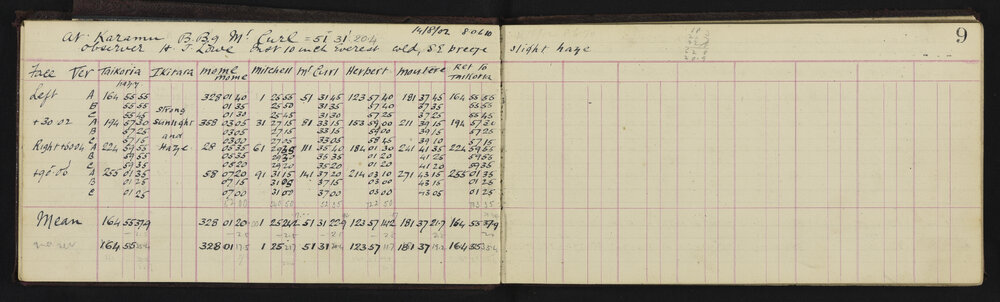 At Karamu B.B.9 Mt Curl = 51 31 20.4 14/8/02 8.0 to 10 9
Observer H. J. Lowe Inst 10 inch Everest cold, S E breeze slight haze
Face Ver Taikoria Ikitara mome mome Mitchell Mt Curl Herpert moutere Ret to Taikoria
hazy
Left A 164 55 55 328 01 40 1 25 55 51 31 45 123 57 40 181 37 45 164 55 55
B 55 55 01 35 25 50 31 35 57 40 37 35 55 55
C 55 45 strong 01 30 25 45 31 30 57 25 37 25 55 45
+30.02 A 194 57 30 sunlight 358 03 05 31 27 15 81 33 15 153 59 00 211 39 15 194 57 35
B 57 25 and 03 05 27 15 33 15 59 00 39 15 57 25
C 57 15 03 00 27 05 33 05 58 45 39 10 57 15
Right +60.04 A 224 59 55 Haze 28 05 35 61 111 35 40 184 01 30 241 41 35 224 59 55
B 59 55 05 35 35 35 01 20 41 25 59 55
C 59 35 05 20 29 20 35 20 01 20 41 20 59 35
+90.06 A 255 01 35 58 07 20 91 31 15 141 37 20 214 03 10 271 43 15 255 01 35
B 01 25 07 15 31 05 37 15 03 00 43 15 01 25
C 01 25 07 00 31 00 37 00 03 00 43 05 01 25
Mean 164 55 37.9 328 01 20 1 25 24.2 51 31 22.9 123 57 14.2 181 37 21.7 164 55 37.9
164 55 328 01 17.5 1 25 51 31 20.4 123 57 11.7 181 37 19.2 164 55 35.4